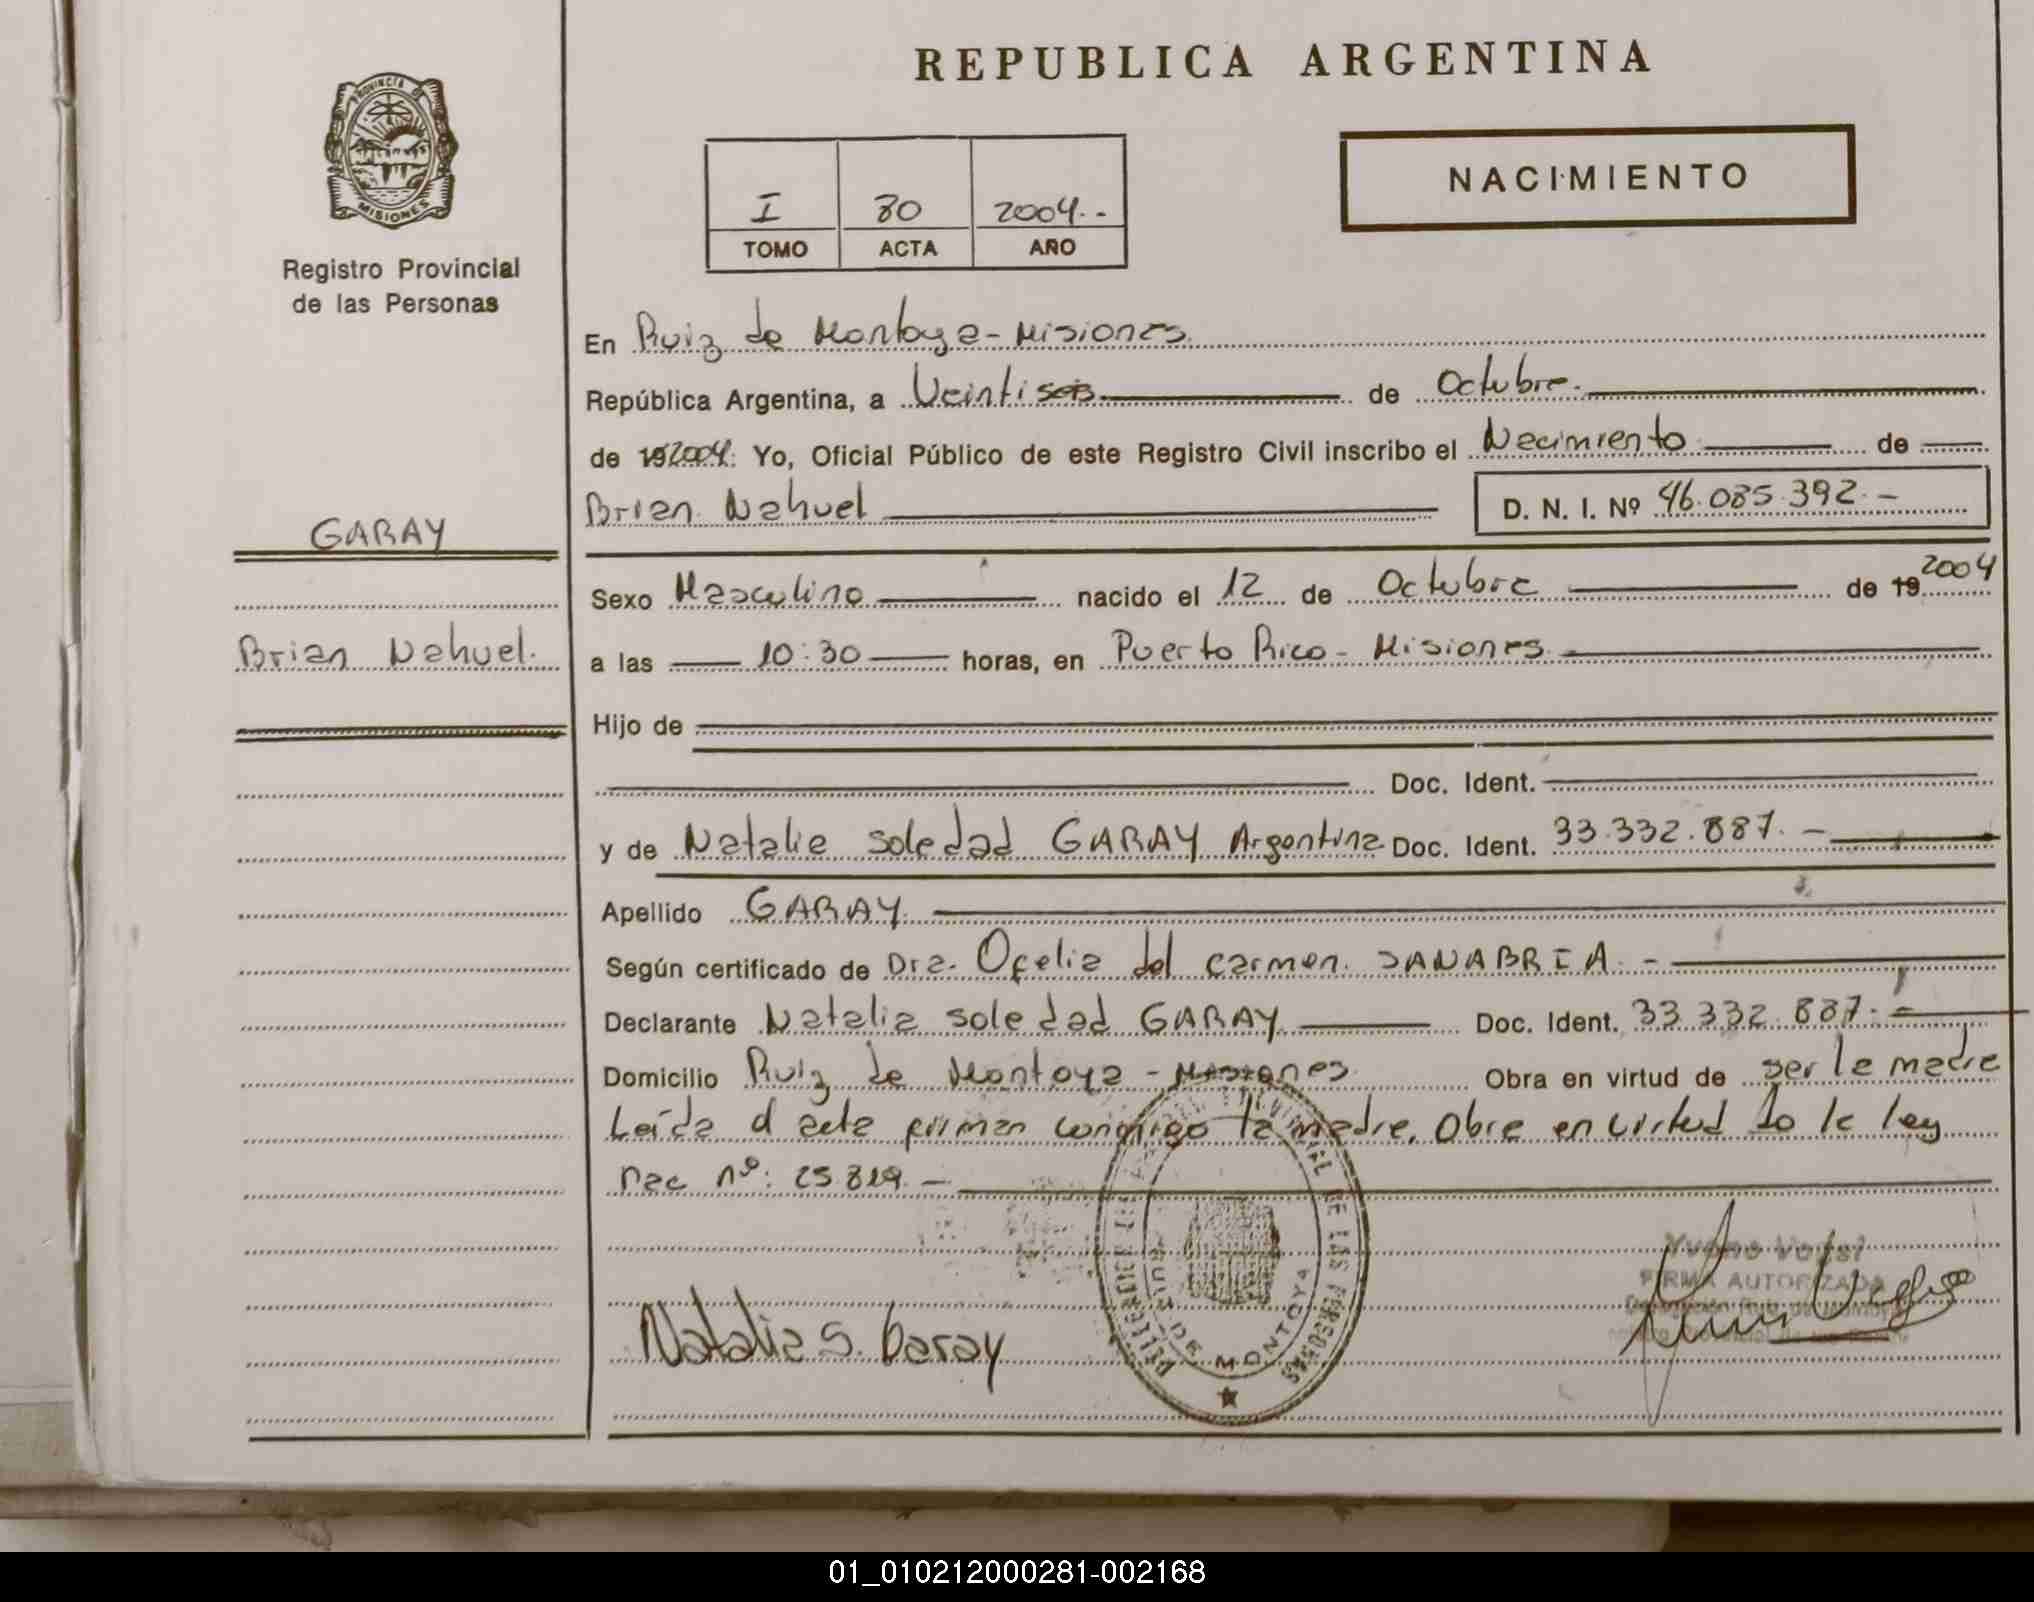 REPUBLICA ARGENTINA
PROVINCIA DE
MISIONES
Registro Provincial
de las Personas
NACIMIENTO
I 80 2004.-
TOMO ACTA AÑO
En Ruiz de Montoya - Misiones
República Argentina, a Veintiseis de Octubre.
de 192004. Yo, Oficial Público de este Registro Civil inscribo el Nacimiento de
Brian Nahuel D. N. I. Nº 46.085.392.-
GARAY
Sexo Masculino nacido el 12 de Octubre de 19 2004
Brian Nahuel.
a las 10:30 horas, en Puerto Rico - Misiones
Hijo de
Doc. Ident.
y de Natalia Soledad GARAY Argentina Doc. Ident. 33.332.887.-
Apellido GARAY
Según certificado de Dra. Ofelia del Carmen SANABRIA.-
Declarante Natalia Soledad GARAY Doc. Ident. 33.332.887.-
Domicilio Ruiz de Montoya - Misiones Obra en virtud de ser la madre
Leída el acta firman conmigo la madre. Obra en virtud de la ley
Nac nº: 25.819.-
DE LAS PERSONAS
RUIZ DE MONTOYA
Natalia S. Garay
FIRMA AUTORIZADA
01_010212000281-002168